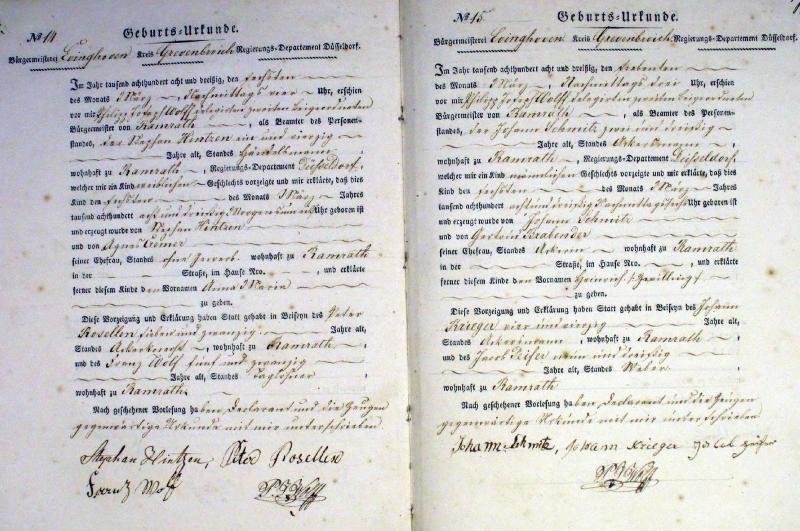 No 14
Geburts-Urkunde.
Bürgermeisterei Evinghoven Kreis Grevenbroich Regierungs-Departement Düsseldorf.
Im Jahr tausend achthundert acht und dreißig, den sechsten
des Monats März, Nachmittags vier Uhr, erschien
vor mir Philipp Joseph Wolff delegirten zweiten Beigeordneten
Bürgermeister von Ramrath, als Beamter des Personen-
standes, der Stephan Hintzen ein und vierzig
Jahre alt, Standes Handelsmann
wohnhaft zu Ramrath, Regierungs-Departement Düsseldorf,
welcher mir ein Kind weiblichen Geschlechts vorzeigte und mir erklärte, daß dies
Kind den sechsten des Monats März Jahres
tausend achthundert acht und dreißig Morgens Uhr geboren ist
und erzeugt wurde von Stephan Hintzen
und von Agnes
seiner Ehefrau, Standes ohne Gewerb wohnhaft zu Ramrath
in der Straße, im Hause Nro. , und erklärte
ferner diesem Kinde den Vornamen Anna Maria
zu geben.
Diese Vorzeigung und Erklärung haben Statt gehabt in Beiseyn des Peter
Rosellen sieben und zwanzig Jahre alt,
Standes Ackerknecht, wohnhaft zu Ramrath,
und des Franz Wolf fünf und zwanzig
Jahre alt, Standes Taglöhner
wohnhaft zu Ramrath
Nach geschehener Vorlesung haben, Declarant und die Zeugen
gegenwärtige Urkunde mit mir unterschrieben
Stephan Hintzen, Peter Rosellen
Frantz Wolf P J Wolff
No 15.
Geburts-Urkunde.
Bürgermeisterei Evinghoven Kreis Grevenbroich Regierungs-Departement Düsseldorf.
Im Jahr tausend achthundert acht und dreißig, den siebenten
des Monats März, Nachmittags drei Uhr, erschien
vor mir Philipp Joseph Wolff delegirten zweiten Beigeordneten
Bürgermeister von Ramrath, als Beamter des Personen-
standes, der Johann Schmitz zwei und dreißig
Jahre alt, Standes Ackersmann
wohnhaft zu Ramrath, Regierungs-Departement Düsseldorf,
welcher mir ein Kind männlichen Geschlechts vorzeigte und mir erklärte, daß dies
Kind den sechsten des Monats März Jahres
tausend achthundert acht und dreißig Nachmittags Uhr geboren ist
und erzeugt wurde von Johann Schmitz
und von Gertrud Krabender
seiner Ehefrau, Standes Ackerin wohnhaft zu Ramrath
in der Straße, im Hause Nro. , und erklärte
ferner diesem Kinde den Vornamen Heinrich (: Zwilling :)
zu geben.
Diese Vorzeigung und Erklärung haben Statt gehabt in Beiseyn des Johann
Krieger vier und vierzig Jahre alt,
Standes Ackersmann, wohnhaft zu Ramrath
und des Jacob Zeifer neun und dreißig
Jahre alt, Standes Weber
wohnhaft zu Ramrath
Nach geschehener Vorlesung haben, Declarant und die Zeugen
gegenwärtige Urkunde mit mir unterschrieben
Johann Schmitz, Johann Krieger Jacob Zeifer
P J Wolff